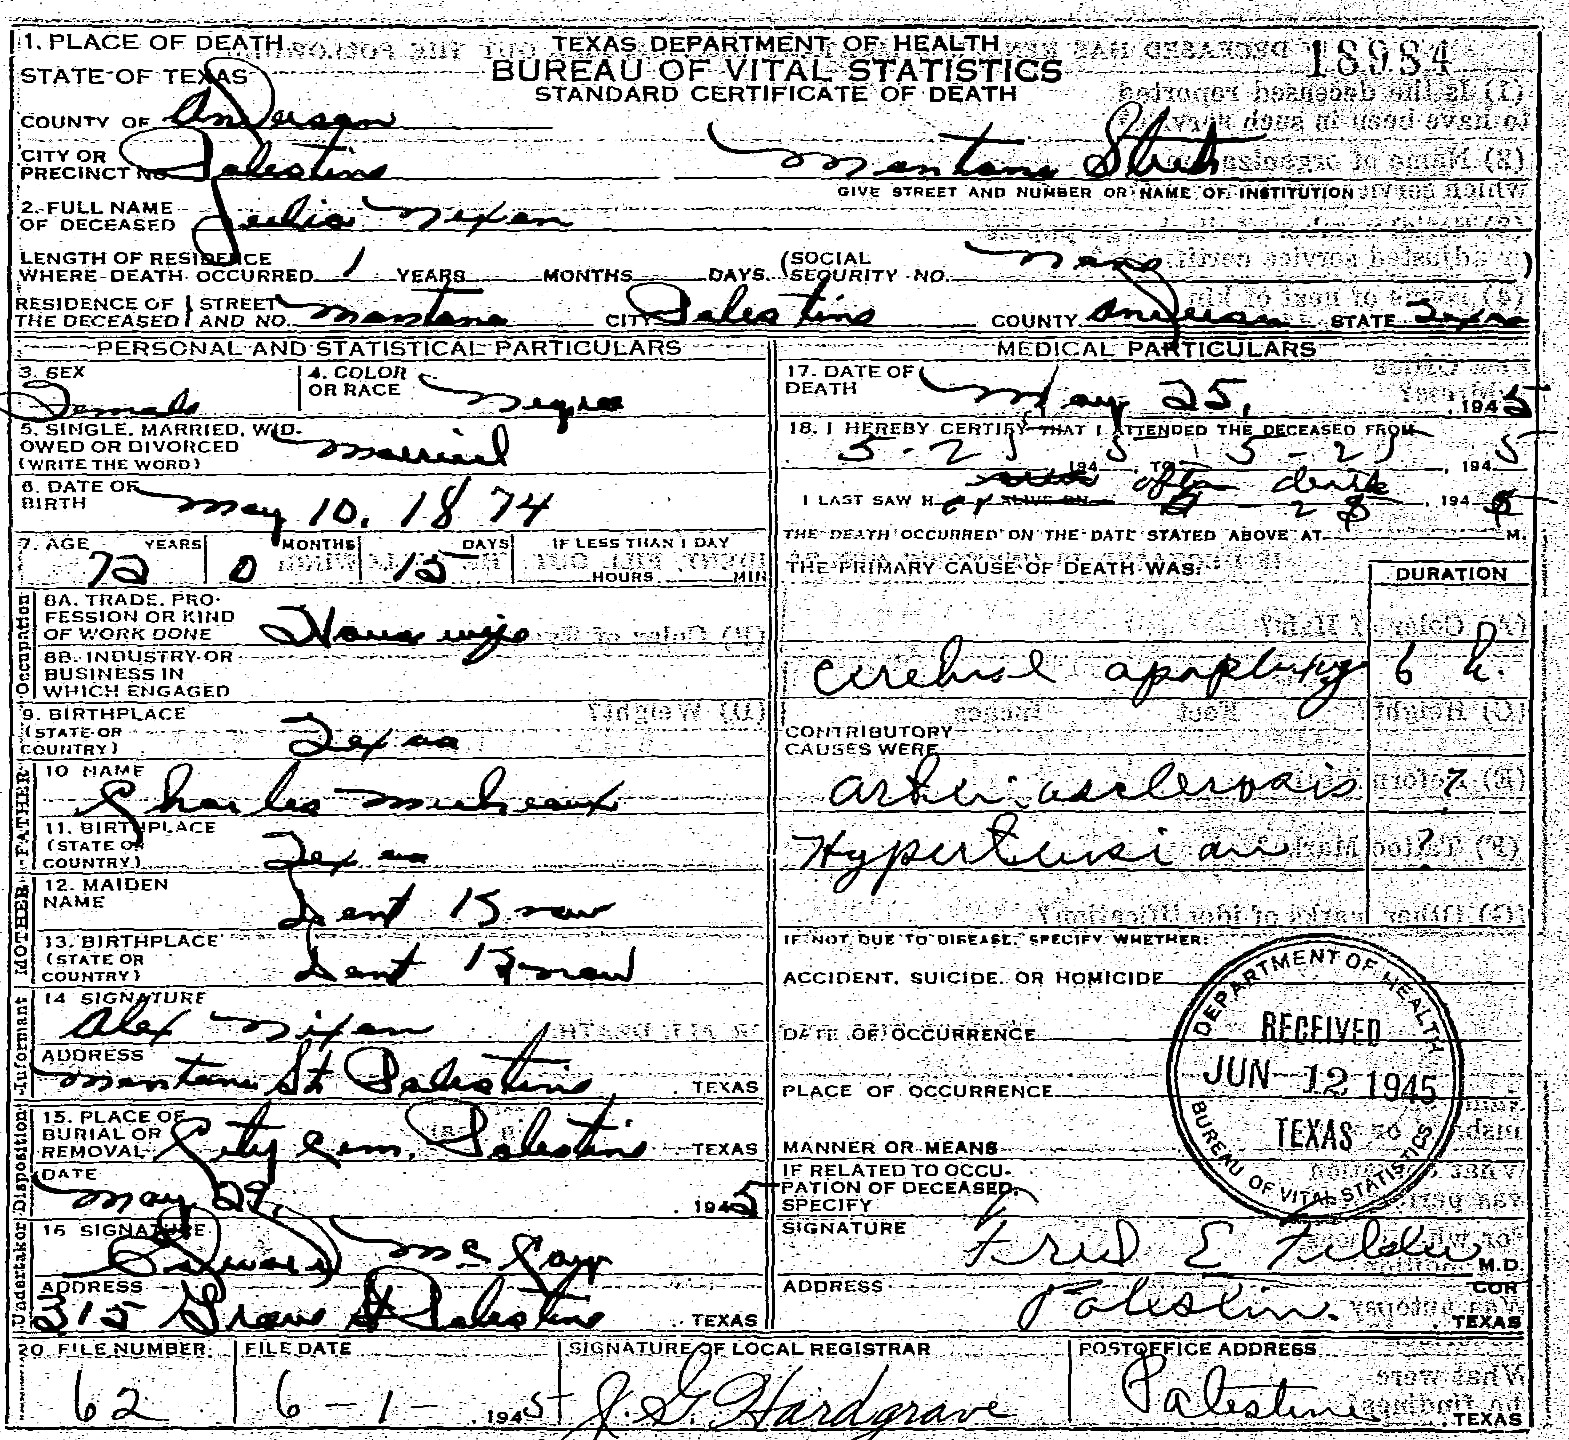 1. PLACE OF DEATH
STATE OF TEXAS
TEXAS DEPARTMENT OF HEALTH
BUREAU OF VITAL STATISTICS
STANDARD CERTIFICATE OF DEATH
18984
COUNTY OF Anderson
CITY OR PRECINCT NO. Palestine
Montana Street
GIVE STREET AND NUMBER OR NAME OF INSTITUTION
2. FULL NAME OF DECEASED Julia Nixon
LENGTH OF RESIDENCE WHERE DEATH OCCURRED 1 YEARS MONTHS DAYS. (SOCIAL SECURITY NO. None )
RESIDENCE OF THE DECEASED STREET AND NO. Montana CITY Palestine COUNTY Anderson STATE Texas
PERSONAL AND STATISTICAL PARTICULARS
3. SEX
Female
4. COLOR OR RACE Negro
5. SINGLE, MARRIED, WIDOWED OR DIVORCED (WRITE THE WORD) Married
6. DATE OF BIRTH May 10, 1874
7. AGE YEARS MONTHS DAYS IF LESS THAN 1 DAY
72 0 15 HOURS MIN
Occupation
8A. TRADE, PROFESSION OR KIND OF WORK DONE House wife
8B. INDUSTRY OR BUSINESS IN WHICH ENGAGED
9. BIRTHPLACE (STATE OR COUNTRY) Texas
FATHER
10 NAME Charles
11. BIRTHPLACE (STATE OR COUNTRY) Texas
MOTHER
12. MAIDEN NAME Dont Know
13. BIRTHPLACE (STATE OR COUNTRY) Dont Know
Informant
14 SIGNATURE
Alex Nixon
ADDRESS
Montana St Palestine . TEXAS
Disposition
15. PLACE OF BURIAL OR REMOVAL City Cem. Palestine TEXAS
DATE
May 29, . 1945
Undertaker
16 SIGNATURE
Edward Mc Coy
ADDRESS
315 St Palestine . TEXAS
MEDICAL PARTICULARS
17. DATE OF DEATH May 25, , 1945
18. I HEREBY CERTIFY THAT I ATTENDED THE DECEASED FROM
5-25 194 5, TO 5-25, 194 5
after death
I LAST SAW H er ALIVE ON , 194 5
THE DEATH OCCURRED ON THE DATE STATED ABOVE AT M.
THE PRIMARY CAUSE OF DEATH WAS:
DURATION
Cerebral apoplexy 6 h.
CONTRIBUTORY CAUSES WERE
Arteriosclerosis ?
Hypertension ?
IF NOT DUE TO DISEASE, SPECIFY WHETHER:
ACCIDENT, SUICIDE, OR HOMICIDE
DATE OF OCCURRENCE
PLACE OF OCCURRENCE
MANNER OR MEANS
IF RELATED TO OCCUPATION OF DECEASED, SPECIFY
DEPARTMENT OF HEALTH
RECEIVED
JUN 12 1945
TEXAS
BUREAU OF VITAL STATISTICS
SIGNATURE Fred E Felder M.D.
COR
ADDRESS Palestine . TEXAS
20 FILE NUMBER FILE DATE SIGNATURE OF LOCAL REGISTRAR POSTOFFICE ADDRESS
62 6-1- , 1945 J. G. Hardgrave Palestine . TEXAS